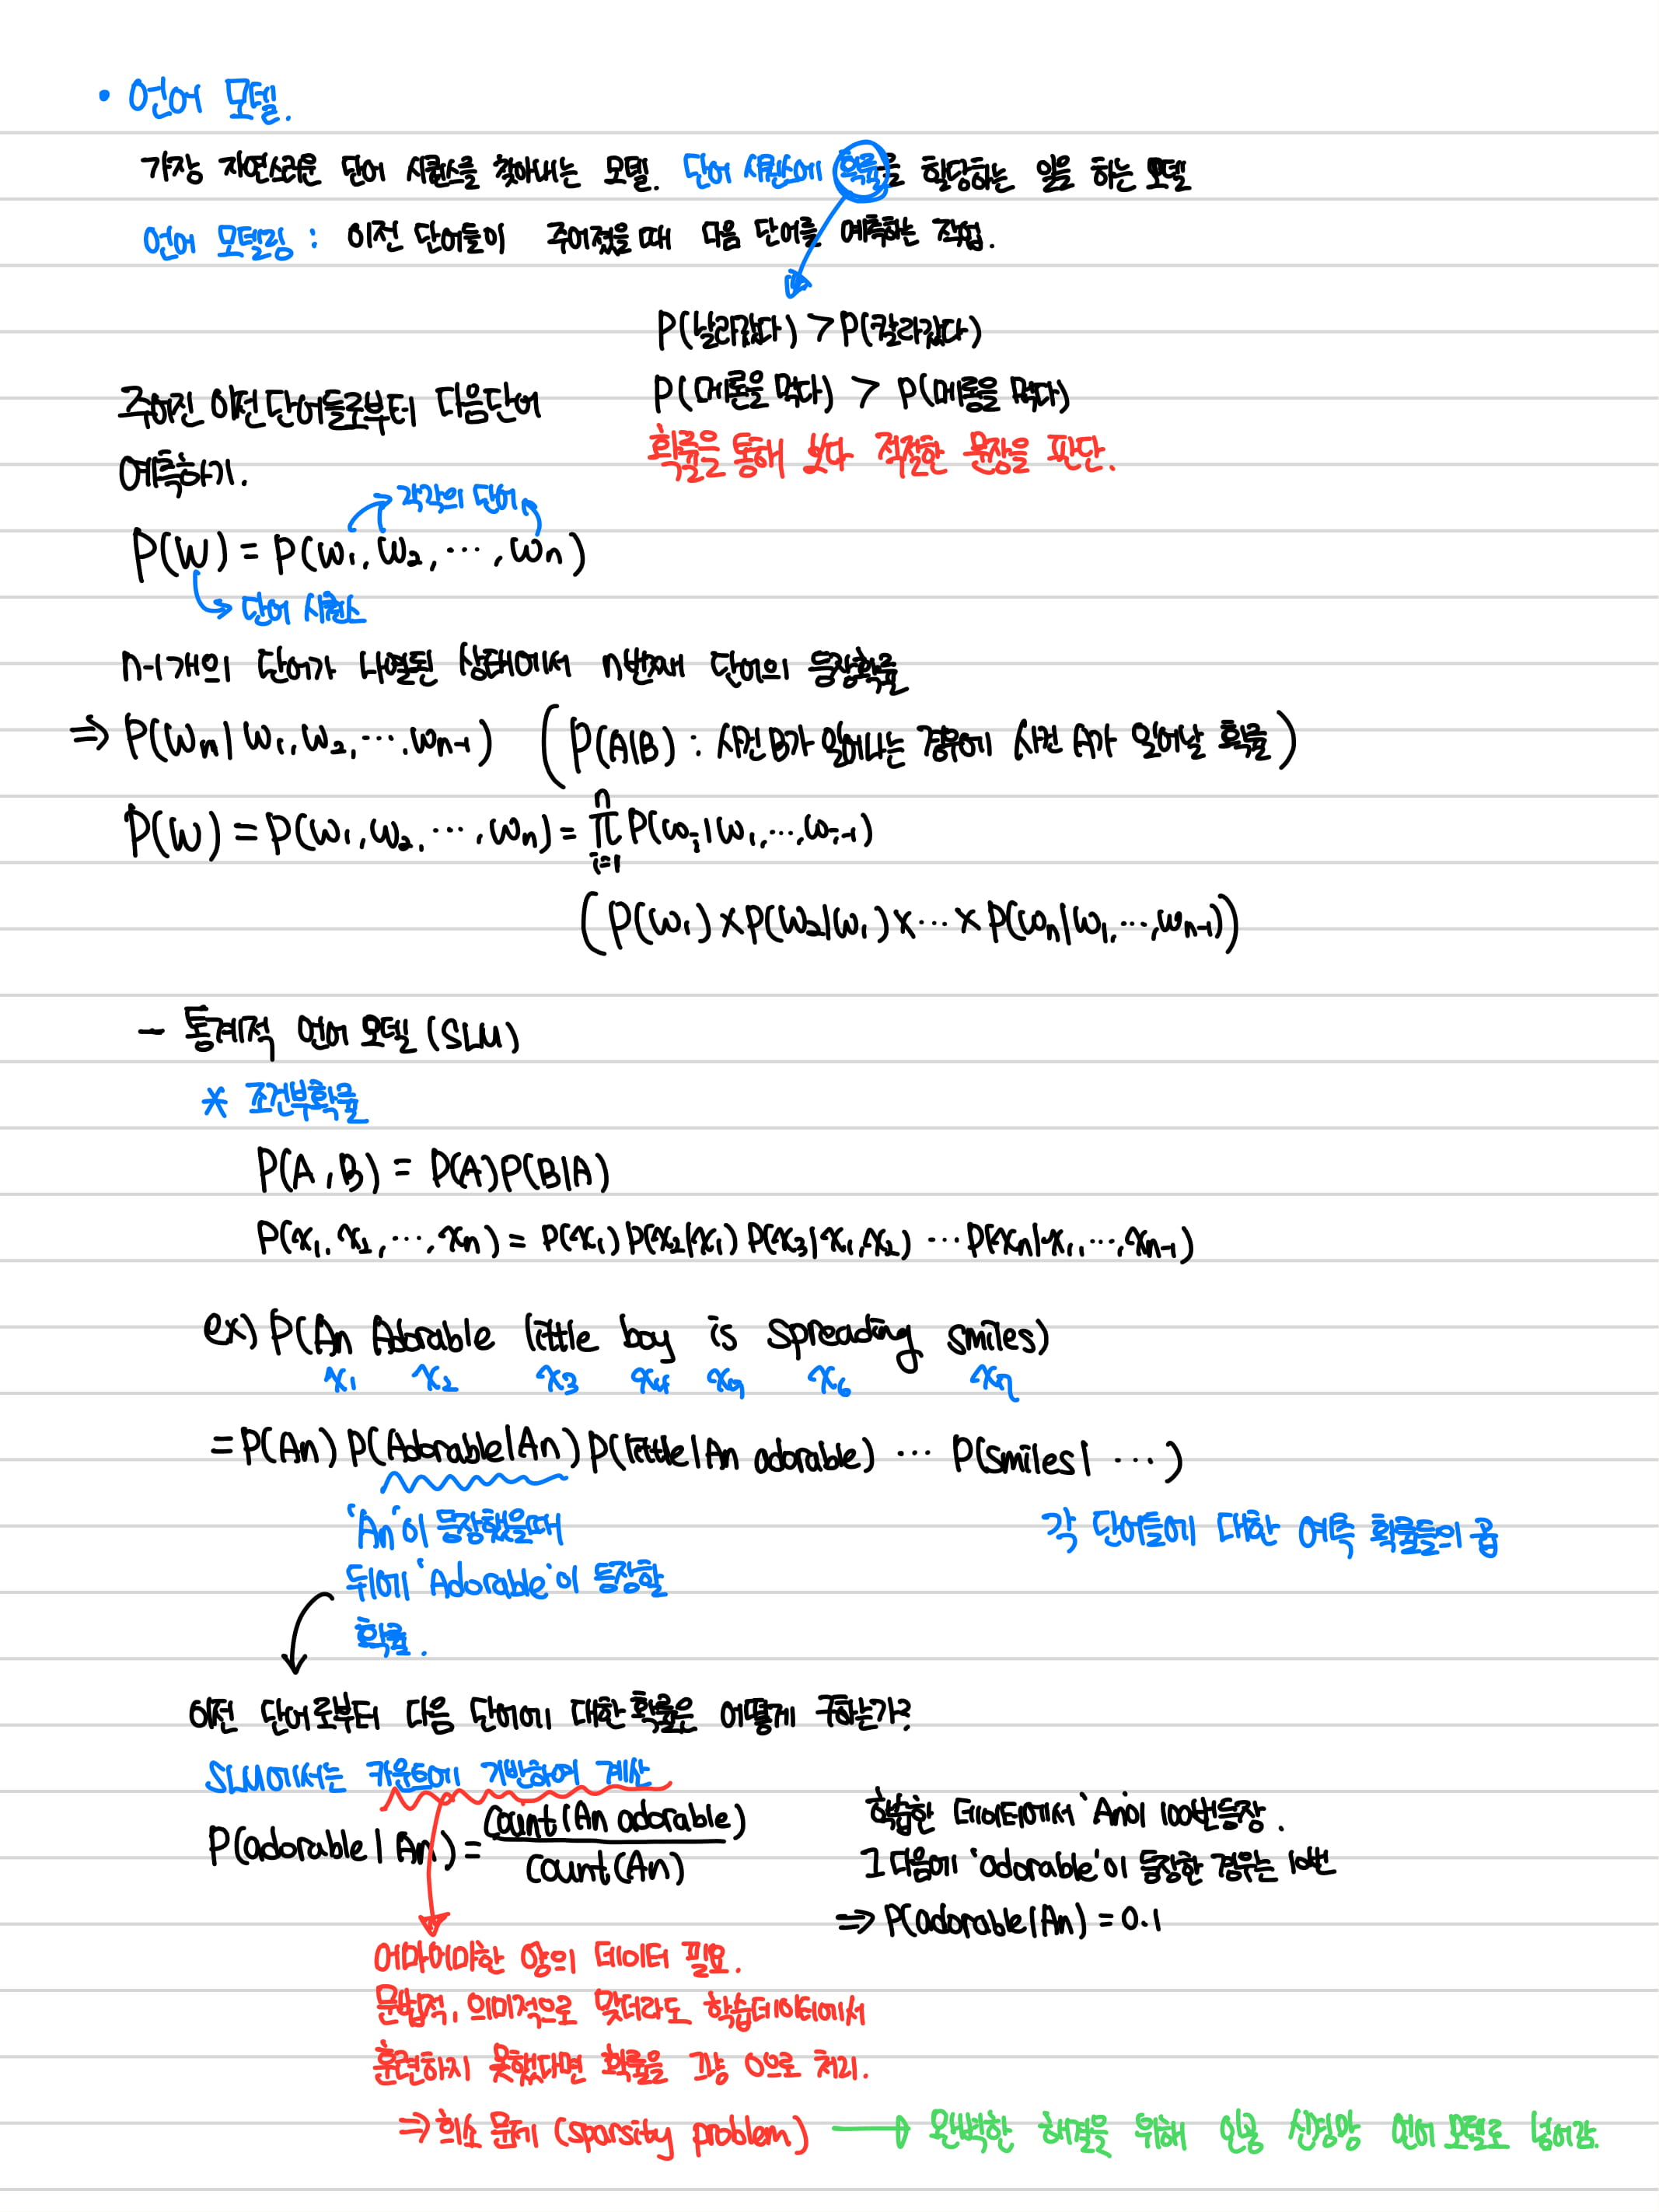 • 언어 모델.
가장 자연스러운 단어 시퀀스를 찾아내는 모델. 단어 시퀀스에 확률를 할당하는 일을 하는 모델
언어 모델링 : 이전 단어들이 주어졌을 때 다음 단어를 예측하는 작업.
P(날라갔다) > P(칼라갔다)
P(메론을 먹다) > P(메롱을 먹다)
확률을 통해 보다 적절한 문장을 판단.
주어진 이전 단어들로부터 다음단어
예측하기.
각각의 단어
P(W) = P(w₁, w₂, ⋯, wₙ)
단어 시퀀스
n-1개의 단어가 나열된 상태에서 n번째 단어의 등장확률
⇒ P(wₙ | w₁, w₂, ⋯, wₙ₋₁) (P(A|B) : 사건 B가 일어나는 경우에 사건 A가 일어날 확률)
P(W) = P(w₁, w₂, ⋯, wₙ) = ∏ⁿᵢ₌₁ P(wᵢ | w₁, ⋯, wᵢ₋₁)
(P(w₁) × P(w₂|w₁) × ⋯ × P(wₙ|w₁, ⋯, wₙ₋₁))
- 통계적 언어 모델 (SLM)
* 조건부확률
P(A, B) = P(A)P(B|A)
P(x₁, x₂, ⋯, xₙ) = P(x₁) P(x₂|x₁) P(x₃|x₁, x₂) ⋯ P(xₙ|x₁, ⋯, xₙ₋₁)
ex) P(An Adorable little boy is spreading smiles)
x₁ x₂ x₃ x₄ x₅ x₆ x₇
= P(An) P(Adorable|An) P(little|An adorable) ⋯ P(smiles| ⋯ )
'An'이 등장했을때
뒤에 'Adorable'이 등장할
확률.
각 단어들에 대한 예측 확률들의 곱
이전 단어로부터 다음 단어에 대한 확률은 어떻게 구하는가?
SLM에서는 카운트에 기반하여 계산
P(adorable | An) = count(An adorable) / count(An)
학습한 데이터에서 'An'이 100번등장.
그 다음에 'adorable'이 등장한 경우는 10번
⇒ P(adorable|An) = 0.1
어마어마한 양의 데이터 필요.
문법적, 의미적으로 맞더라도 학습데이터에서
훈련하지 못했다면 확률을 그냥 0으로 처리.
⇒ 희소 문제 (sparsity problem) → 완벽한 해결을 위해 인공 신경망 언어 모델로 넘어감.